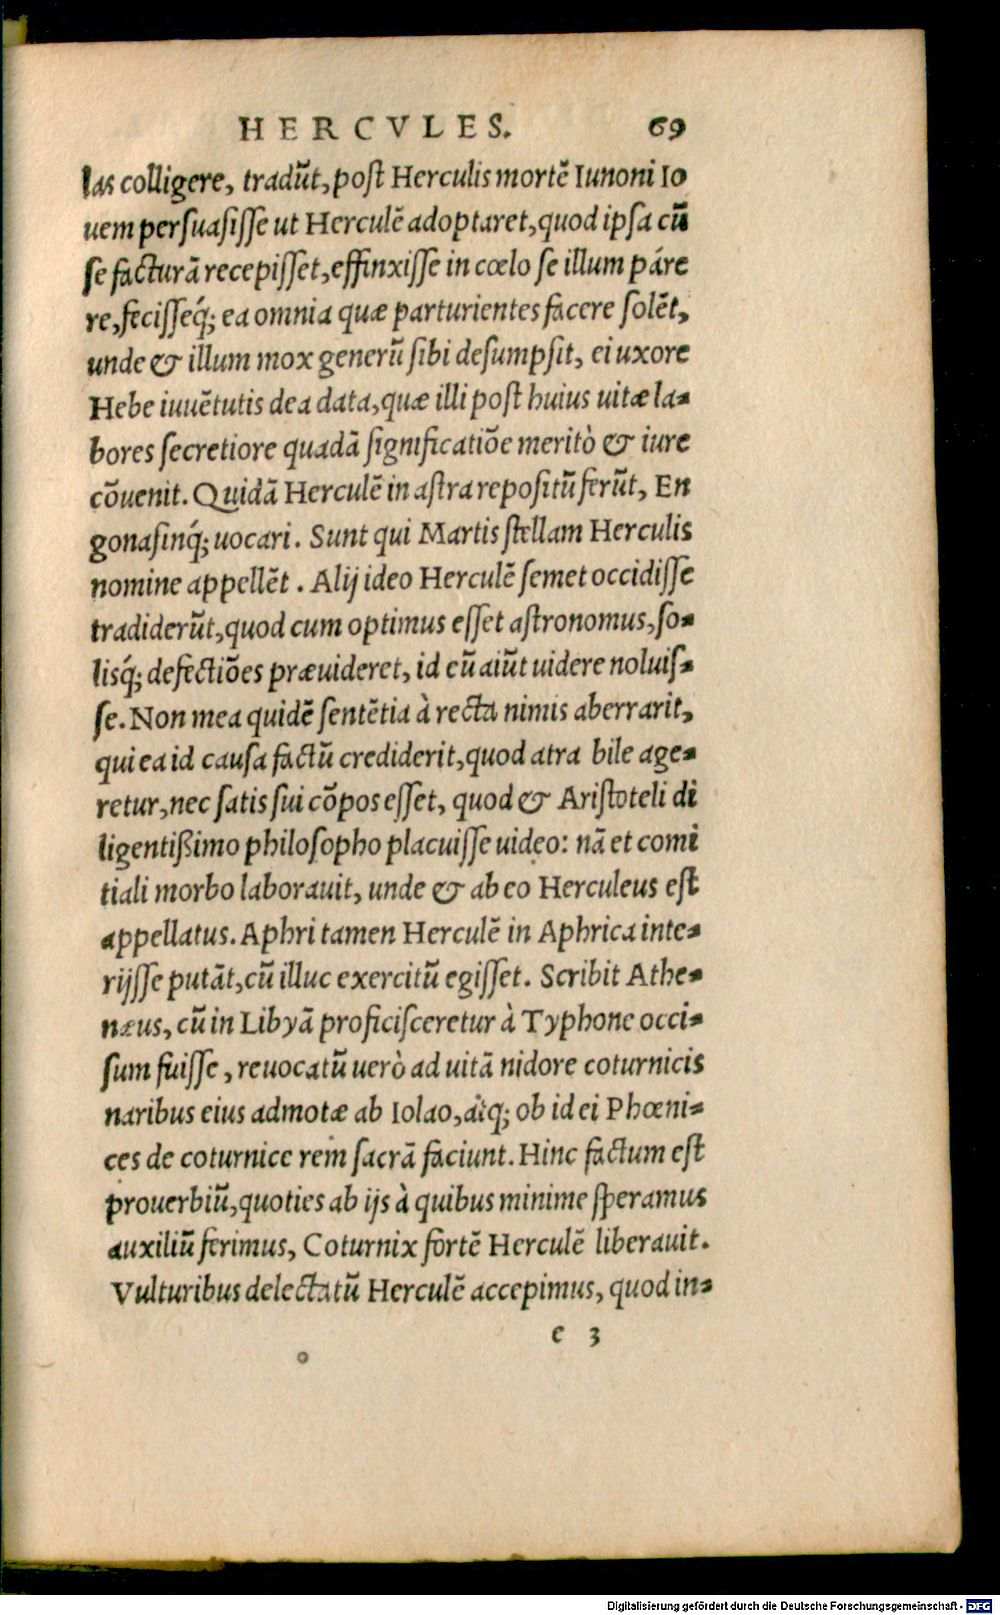 HERCVLES. 69
las colligere, tradūt, post Herculis mortē Iunoni Io
uem persuasisse ut Herculē adoptaret, quod ipsa cū
se facturā recepisset, effinxisse in cœlo se illum páre
re, fecisseq́; ea omnia quæ parturientes facere solēt,
unde & illum mox generū sibi desumpsit, ei uxore
Hebe iuuētutis dea data, quæ illi post huius uitæ la-
bores secretiore quadā significatiōe meritò & iure
cōuenit. Quidā Herculē in astra repositū ferūt, En
gonasinq́; uocari. Sunt qui Martis stellam Herculis
nomine appellēt. Alij ideo Herculē semet occidisse
tradiderūt, quod cum optimus esset astronomus, so-
lisq́; defectiōes præuideret, id eū aiūt uidere noluis-
se. Non mea quidē sentētia à recta nimis aberrarit,
qui ea id causa factū crediderit, quod atra bile age-
retur, nec satis sui cōpos esset, quod & Aristoteli di
ligentißimo philosopho placuisse uideo: nā et comi
tiali morbo laborauit, unde & ab eo Herculeus est
appellatus. Aphri tamen Herculē in Aphrica inte-
rijsse putāt, cū illuc exercitū egisset. Scribit Athe-
næus, cū in Libyā proficisceretur à Typhone occi-
sum fuisse, reuocatū uerò ad uitā nidore coturnicis
naribus eius admotæ ab Iolao, atq; ob id ei Phœni-
ces de coturnice rem sacrā faciunt. Hinc factum est
prouerbiū, quoties ab ijs à quibus minime speramus
auxiliū ferimus, Coturnix fortē Herculē liberauit.
Vulturibus delectatū Herculē accepimus, quod in-
e 3
Digitalisierung gefördert durch die Deutsche Forschungsgemeinschaft - DFG